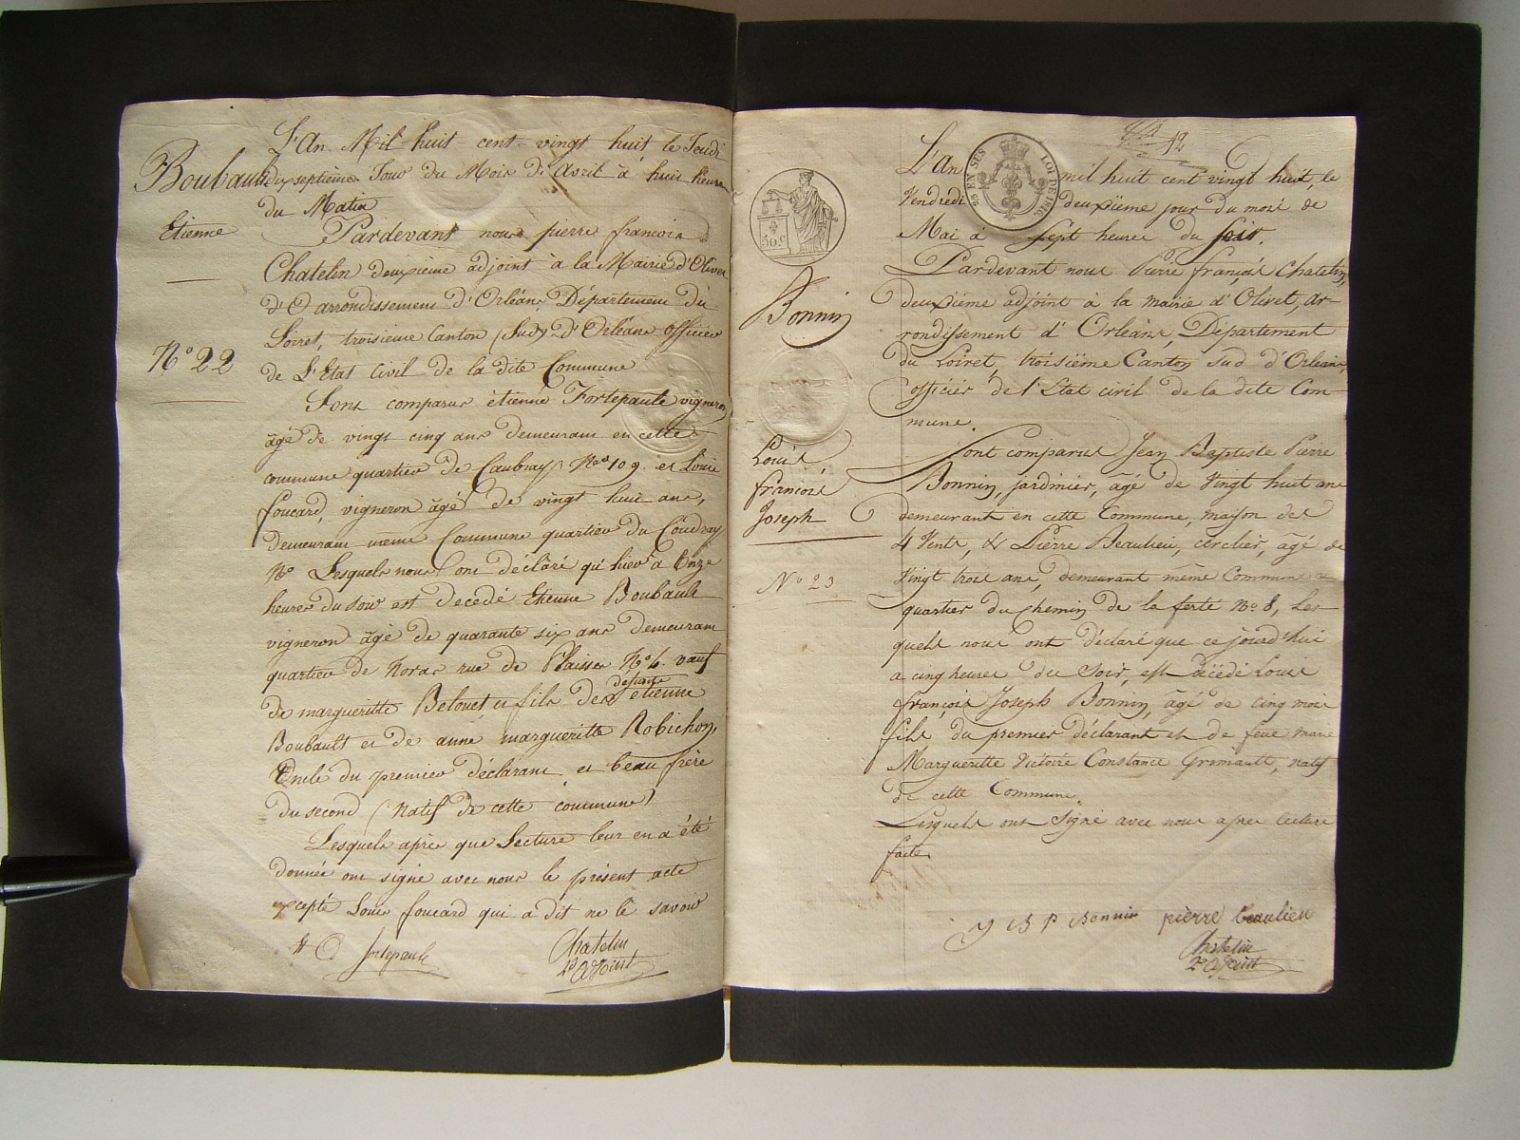 Boubault
Etienne
N° 22
L'An Mil huit cent vingt huit le Jeudi
dix septième Jour du Mois d'Avril à huit heures
du Matin
Pardevant nous pierre francois
Chatelin deuxieme adjoint à la Mairie d'Olivet
d'O arrondissement d'Orléans Département du
Loiret, troisieme Canton (Sud) d'Orléans officier
de L'Etat Civil de la dite Commune
Sont comparus étienne Fortepaule vigneron
âgé de vingt cinq ans demeurant en cette
commune quartier de Caubray N° 109. et Louis
foucard, vigneron âgé de vingt huit ans,
demeurant meme Commune quartier du Coudray
N° Lesquels nous ont déclaré qu'hier à Onze
heures du soir est decedé Etienne Boubault
vigneron âgé de quarante six ans demeurant
quartier de Noras rue de Plaisse N° 6. veuf
de margueritte Belouet et fils de defunts etienne
Boubault et de anne margueritte Robichon,
Oncle du premier déclarant et beau frère
du second (natif de cette commune)
Lesquels après que Lecture leur en a été
donnée ont signé avec nous le présent acte
excepté Louis foucard qui a dit ne le savoir
fortepaule
Chatelin
2e adjoint
12
EN SUS
LOI DE 1816
50 c
Bonnin
Louis
francois
Joseph
N° 23
L'An mil huit cent vingt huit, le
Vendredi deuxième jour du mois de
Mai à Sept heures du soir.
Pardevant nous Pierre françois Chatelin,
deuxième adjoint à la mairie d'Olivet, ar-
rondissement d'Orléans, Département
du Loiret, troisième Canton sud d'Orleans
officier de l'Etat civil de la dite Com-
mune.
Sont comparus Jean Baptiste Pierre
Bonnin, jardinier, âgé de Vingt huit ans
demeurant en cette Commune, maison des
4 Vents, & Pierre Beaulieu, cerclier, âgé de
Vingt trois ans, demeurant même Commune
quartier du chemin de la ferté N° 8, Les-
quels nous ont déclaré que ce jourd'hui
a cinq heures du Soir, est décédé Louis
françois Joseph Bonnin, âgé de cinq mois
fils du premier déclarant et de feue marie
Margueritte Victoire Constance Grimault, natif
de cette Commune.
Lesquels ont Signé avec nous apres lecture
faite.
J B P Bonnin pièrre beaulieu
Chatelin
2e adjoint